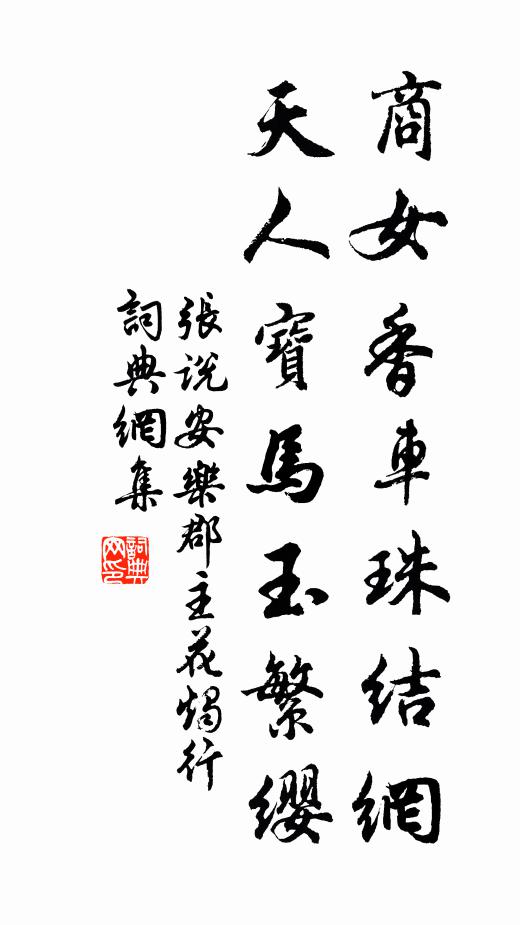 商女香車珠結網
天人寶馬玉繁纓
張説安樂郡主花燭行
詞典網集
詞典
网印